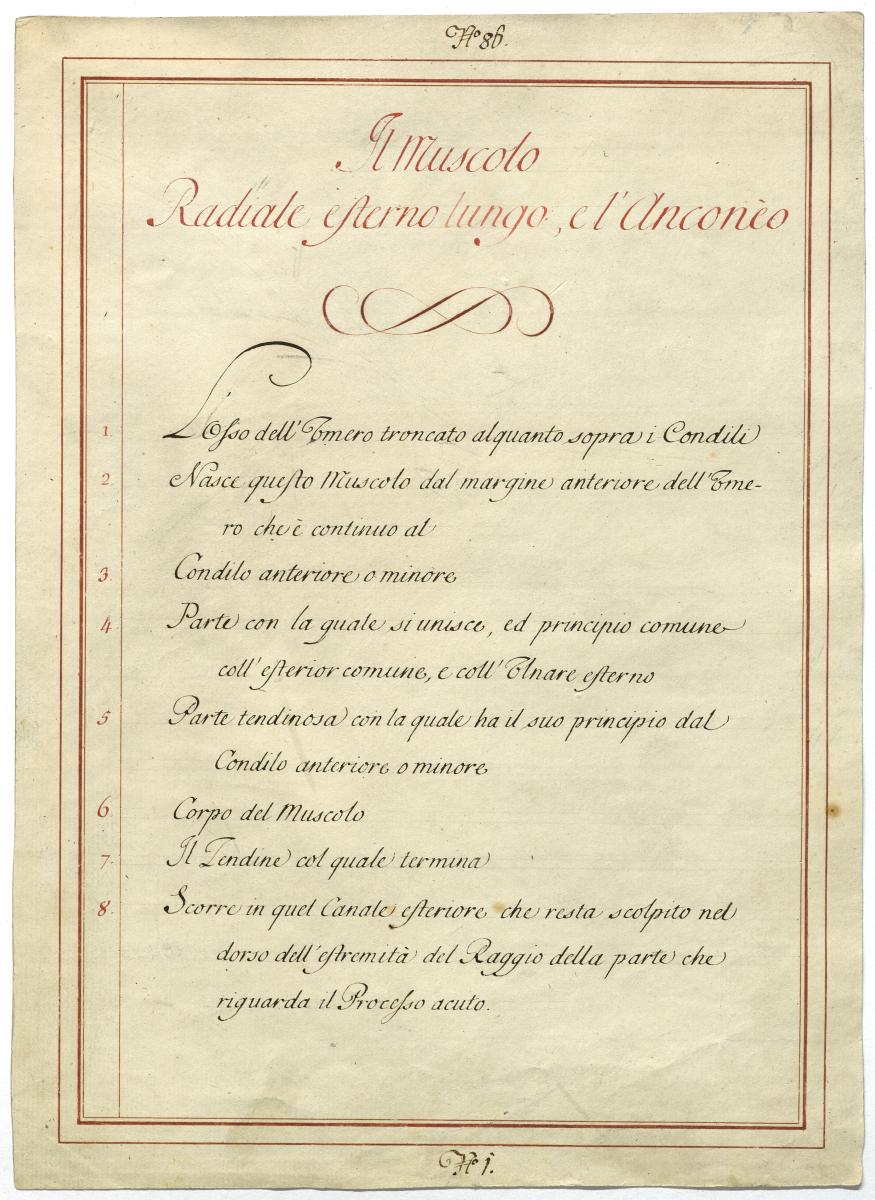 N.º 86.
Il Muscolo
Radiale esterno lungo, e l'Anconèo
1. L'Osso dell'Omero troncato alquanto sopra i Condili
2. Nasce questo Muscolo dal margine anteriore dell'Ome-
ro che è continuo al
3. Condilo anteriore o minore
4. Parte con la quale si unisce, ed principio comune
coll'esterior comune, e coll'Ulnare esterno
5. Parte tendinosa con la quale ha il suo principio dal
Condilo anteriore o minore
6. Corpo del Muscolo
7. Il Tendine col quale termina
8. Scorre in quel Canale esteriore che resta scolpito nel
dorso dell'estremità del Raggio della parte che
riguarda il Processo acuto.
N.º 1.